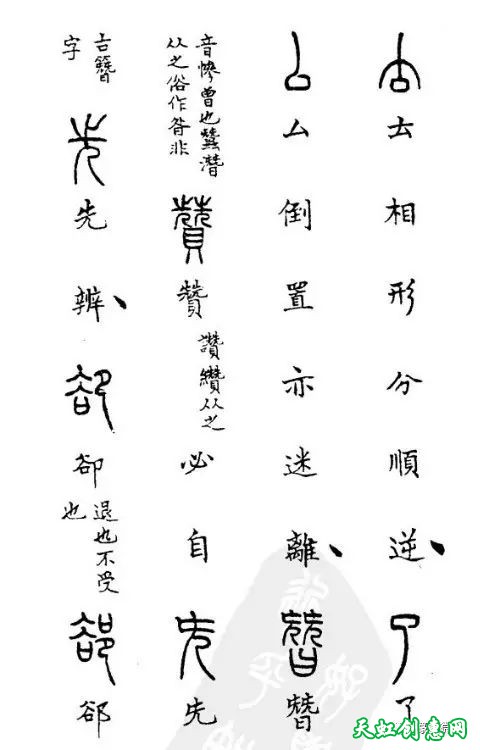 去去相形分順逆、了了
厶厶倒置亦迷離、朁朁
音慘曾也蠶潛
从之俗作昝非
贊贊
讚纘从之
必自兂兂
古簪
字
先先辨、卻卻
退也不受
也
郤郤
天虹创意网